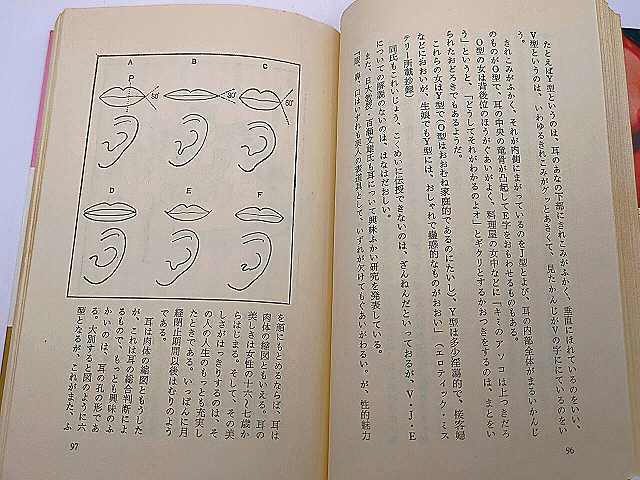 たとえばY型というのは、耳のあなの下部にきれこみがふかく、垂直にほれているのをいい、
V型というのは、いわゆるきれこみがグッとあさくて、見たかんじがVの字ににているのをい
う。
きれこみがふかく、それが内側にまがっているのをJ型とよび、耳の内部全体がまるいかんじ
のものがO型で、耳の中央の竜骨が凸起してE字をおもわせるものもある。
O型の女は背後位のほうがぐあいがよく、料理屋の女中などに「キミのアソコは上つきだろ
う」というと、「どうしてそれがわかるのよオ」とギクリとするかおつきをするのは、まとをい
られたおどろきでもあるようだ。
これらの女はY型で(O型はおおむね家庭的であるのにたいし)、Y型は多少淫蕩的で、接客婦
などにおおいが、生娘でもY型には、おしゃれで蠱惑的なものがおおい」(エロティック・ミス
テリー所載抄録)
同氏もこれいじょう、こくめいに伝授できないのは、ざんねんだといっておるが、V・J・E
についての解説のないのは、はなはだおしい。
また、日大教授・百瀬文雄氏も耳について興味ふかい研究を発表している。
「眼、鼻、口はいずれも美人の要道具として、いずれが欠けてもぐあいがわるい。が、性的魅力
96
A
P
80°
B
50°
C
80°
D
E
F
を顔にもとめるならば、耳は
肉体の縮図ともいえる。耳の
美しさは女性の十六〜七歳か
らはじまる。そして、その美
しさがはっきりするのは、そ
の人の人生のもっとも充実し
たときである。いっぱんに月
経閉止期間以後はむりのよう
である。
耳は肉体の縮図ともうした
が、これは耳の総合判断によ
るもので、もっとも興味のふ
かいのは、耳の孔の形であ
る。大別すると図のように六
型となるが、これがまた、ふ
97